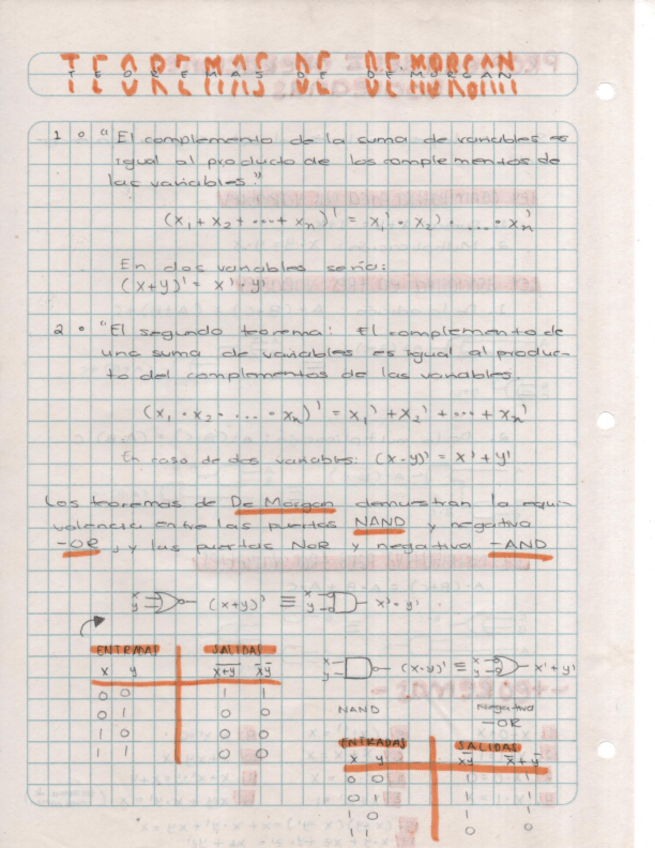 TEOREMAS DE DEMORGAN
1 ° "El complemento de la suma de variables es
igual al producto de los complementos de
las variables."
(x₁ + x₂ + ... + xₙ)' = x₁' · x₂' · ... · xₙ'
En dos variables seria:
(x+y)' = x' · y'
2 ° "El segundo teorema: El complemento de
una suma de variables es igual al produc-
to del complementos de las variables.
(x₁ · x₂ · ... · xₙ)' = x₁' + x₂' + ... + xₙ'
En caso de dos variables: (x·y)' = x' + y'
Los teoremas de De Morgan demuestran la equi-
valencia entre las puertas NAND y negativa
-OR, y las puertas NOR y negativa -AND
x y (x+y)' ≡ x y x' · y'
ENTRADAS SALIDAS
x y x̅+̅y̅ x̅y̅
0 0 1 1
0 1 0 0
1 0 0 0
1 1 0 0
x y (x·y)' ≡ x y x' + y'
NAND Negativa
-OR
ENTRADAS SALIDAS
x y x̅y̅ x̅ + y̅
0 0 1 1
0 1 1 1
1 0 1 1
1 1 0 0